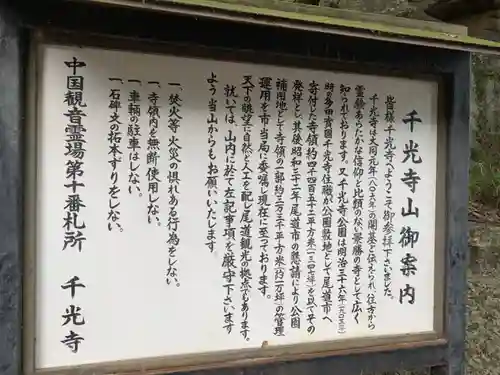 千光寺山御案内
皆様千光寺へようこそ御参拝下さいました。
千光寺は大同元年(八〇六年)の開基と伝えられ、往方から
霊験あらたかな信仰と比類のない景勝の寺として広く
知られております。又千光寺公園は明治三十六年(一九〇三)
時の多田實圓千光寺住職が公園敷地として尾道市へ
寄付した寺領約四千四百五十二平方米(一三四七坪)を以てその
発祥とし其後昭和三十二年尾道市の懇請により公園
補用地として寺領の一部約三万三千平方米(約一万坪)の管理
運用を市当局に委嘱し現在に至っております。
天下の眺望に自然と人工を配し尾道観光の拠点でもあります。
就いては、山内に於て左記事項を厳守下さいます
よう当山からもお願いいたします。
一、焚火等火災の惧れある行為をしない。
一、寺領内を無断使用しない。
一、車輌の駐車はしない。
一、石碑文の拓本ずりをしない。
中国観音霊場第十番札所 千光寺